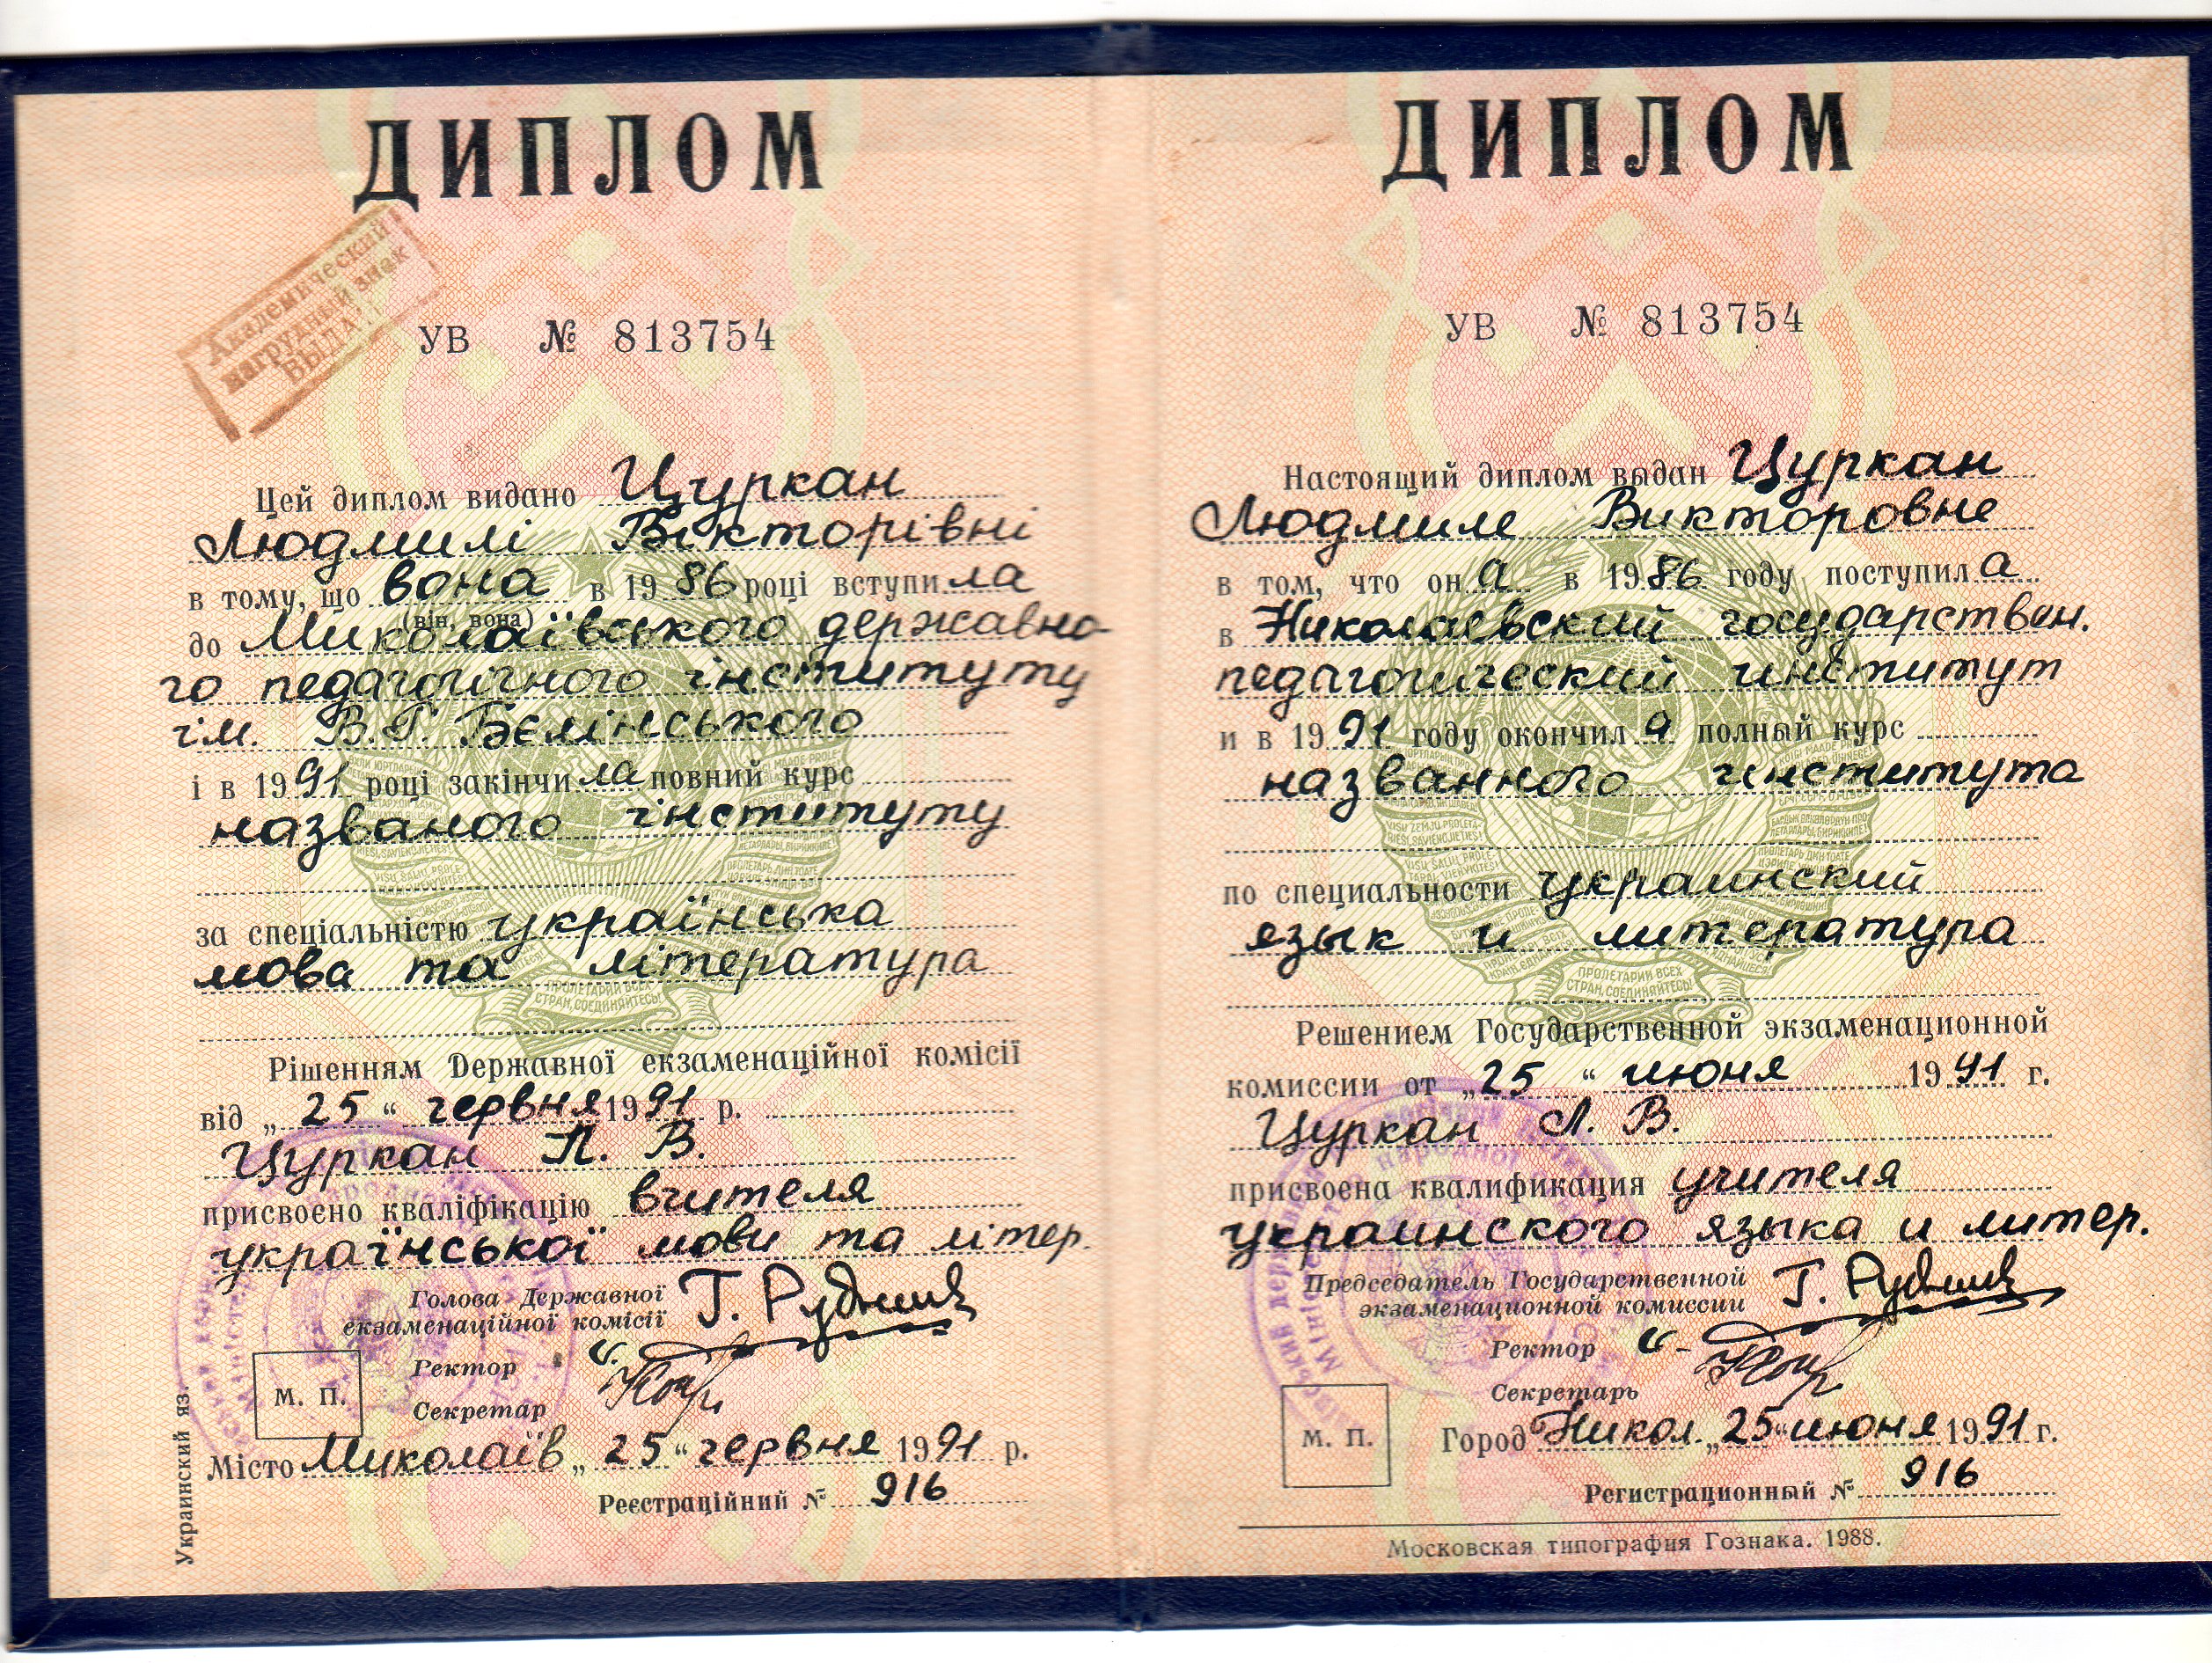 ДИПЛОМ
Академический
нагрудный знак
ВЫДАН
УВ № 813754
Цей диплом видано Цуркан
Людмилі Вікторівні
в тому, що вона в 1986 році вступила
(він, вона)
до Миколаївського державно-
го педагогічного інституту
ім. В.Г. Бєлінського
і в 1991 році закінчила повний курс
названого інституту
за спеціальністю українська
мова та література
ПРОЛЕТАРИИ ВСЕХ
СТРАН, СОЕДИНЯЙТЕСЬ!
Рішенням Державної екзаменаційної комісії
від „25“ червня 1991 р.
Цуркан Л. В.
присвоєно кваліфікацію вчителя
української мови та літер.
Голова Державної
екзаменаційної комісії Г. Рудниц
Ректор
Секретар
М. П.
Місто Миколаїв „25“ червня 1991 р.
Реєстраційний № 916
Украинский яз.
ДИПЛОМ
УВ № 813754
Настоящий диплом выдан Цуркан
Людмиле Викторовне
в том, что она в 1986 году поступила
в Николаевский государствен.
педагогический институт
и в 1991 году окончила полный курс
названного института
по специальности украинский
язык и литература
ПРОЛЕТАРИИ ВСЕХ
СТРАН, СОЕДИНЯЙТЕСЬ!
Решением Государственной экзаменационной
комиссии от „25“ июня 1991 г.
Цуркан Л. В.
присвоена квалификация учителя
украинского языка и литер.
Председатель Государственной
экзаменационной комиссии Г. Рудниц
Ректор
Секретарь
М. П.
Город Никол. „25“ июня 1991 г.
Регистрационный № 916
Московская типография Гознака. 1988.